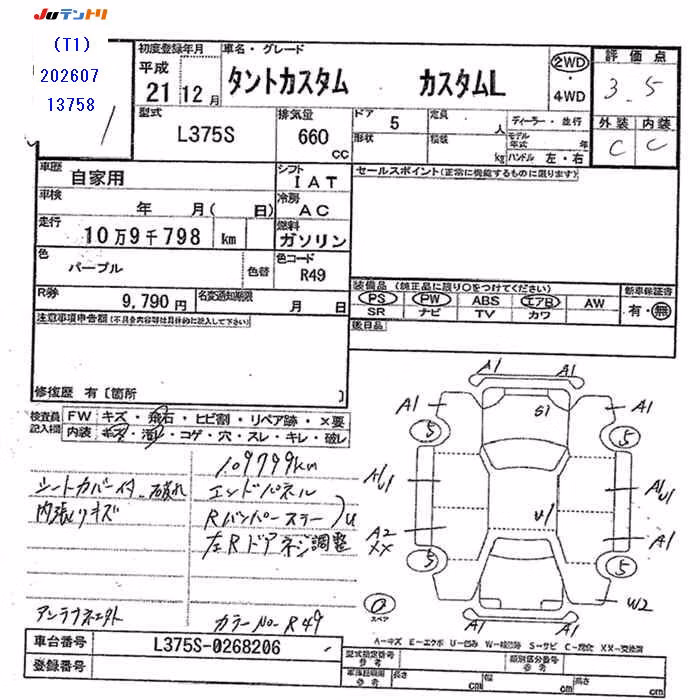 JUテントリ
(T1)
202607
13758
初度登録年月
平成
21 12月
車名・グレード
タントカスタム カスタムL
2WD
・
4WD
評価点
3.5
外装 内装
C C
型式
L375S
排気量
660
CC
ドア 5
形状
定員 人
積載 kg
ディーラー・並行
モデル年式 年
ハンドル 左・右
車歴
自家用
シフト
IAT
セールスポイント(正常に機能するものに限ります)
車検
年 月( 日)
冷房
AC
走行
10万9千798 km
燃料
ガソリン
色
パープル
色替
色コード
R49
装備品 (純正品に限り○をつけてください)
PS PW ABS エアB AW
SR ナビ TV カワ
新車保証書
有・無
R券
9,790円
名変通知期限
月 日
後日品
注意事項申告欄(不具合内容等は具体的に記入して下さい)
修復歴 有[箇所 ]
検査員記入欄
FW キズ・飛石・ヒビ割・リペア跡・×要
内装 キズ・汚レ・コゲ・穴・スレ・キレ・破レ
109799km
シートカバー付 破れ
エンドパネル
内張りキズ
Rバンパーステー U
左Rドアネジ調整
アンテナ
カラーNo-R49
A1 A1
A1 A1
S1
5 5
A1 U1
A1 U1
U1
A2
XX
A1
5 5
W2
A1 A1
スペア
A-キズ E-エクボ U-凹み W-補修跡 S-サビ C-腐食 XX-交換済
車台番号
L375S-0268206
登録番号
型式指定番号
参考
類別区分番号
参考
車庫証明用
参考
長さ cm
幅 cm
高さ cm